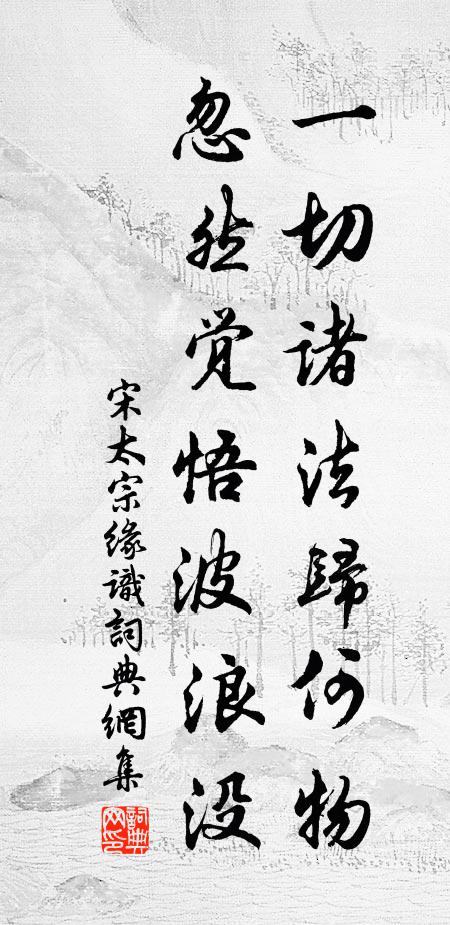 一切诸法歸何物
忽然觉悟波浪没
宋太宗缘識詞典網集
詞典网印